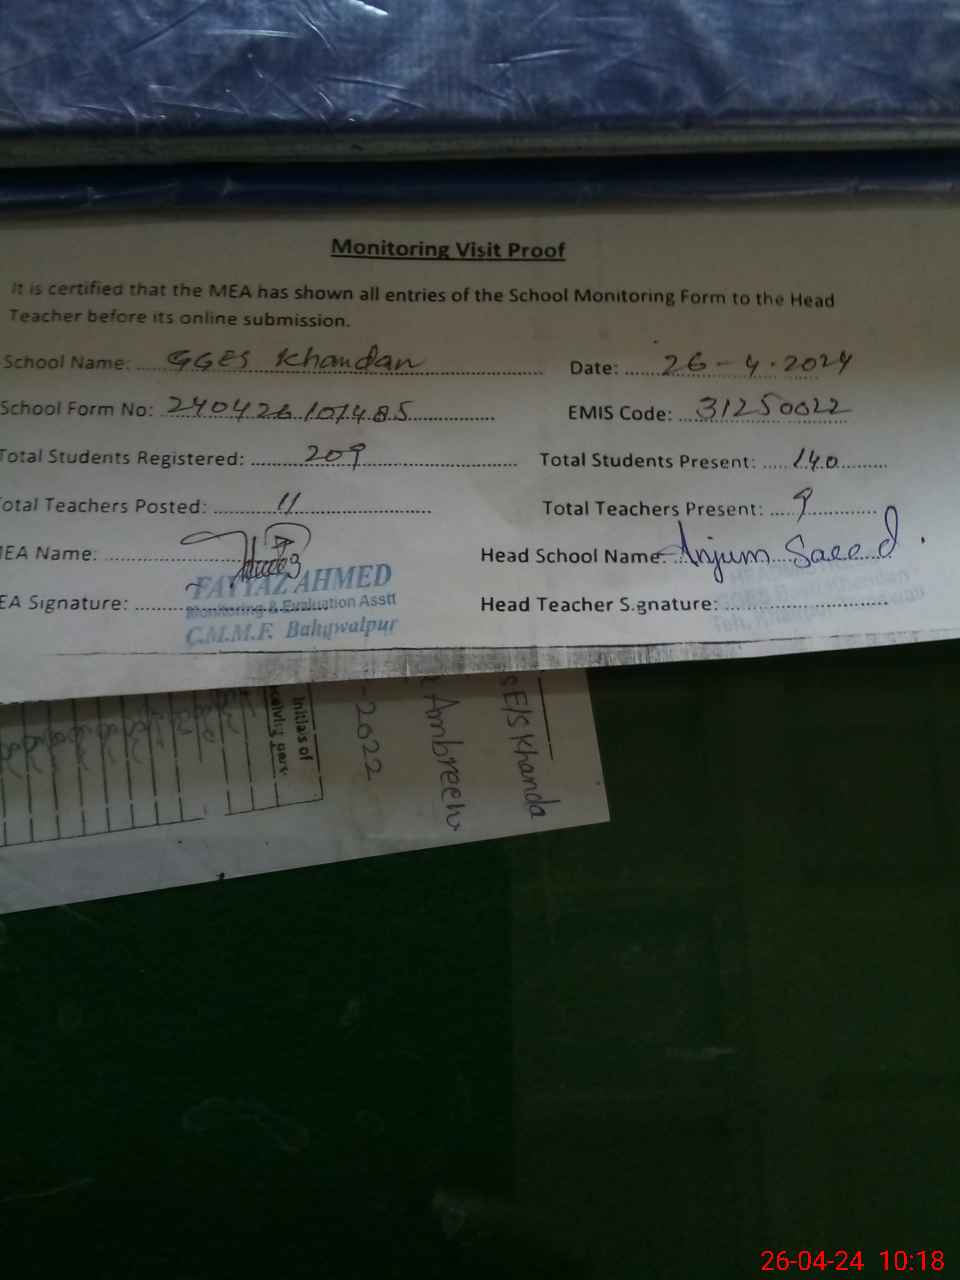 Monitoring Visit Proof
It is certified that the MEA has shown all entries of the School Monitoring Form to the Head
Teacher before its online submission.
School Name: GGES Khandan Date: 26-4-2024
School Form No: 240426101485 EMIS Code: 31250022
Total Students Registered: 209 Total Students Present: 140
Total Teachers Posted: 11 Total Teachers Present: 9
MEA Name: Head School Name: Anjum Saeed
FAYYAZ AHMED
EA Signature: Monitoring & Evaluation Asstt Head Teacher S.gnature:
C.M.M.F. Bahawalpur
Initials of
-2022
Ambreen
sE/S Khanda
26-04-24 10:18